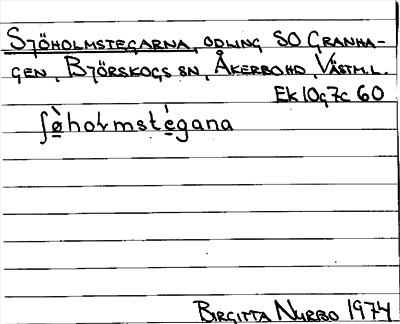 SJÖHOLMSTEGARNA, ODLING SO GRANHA-
GEN, BJÖRSKOGS SN, ÅKERBO HD, VÄSTM.L.
EK 10g7c 60
ʃø̠̀hoɫmste̠̍gana
BIRGITTA NURBO 1974